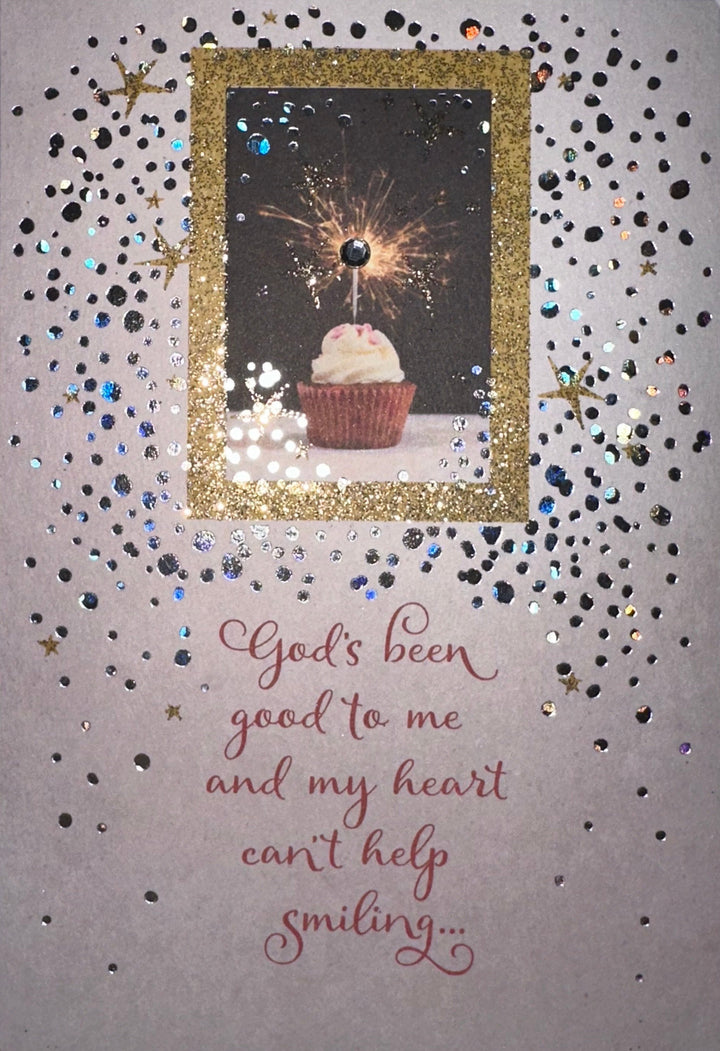 God's been
good to me
and my heart
can't help
smiling...